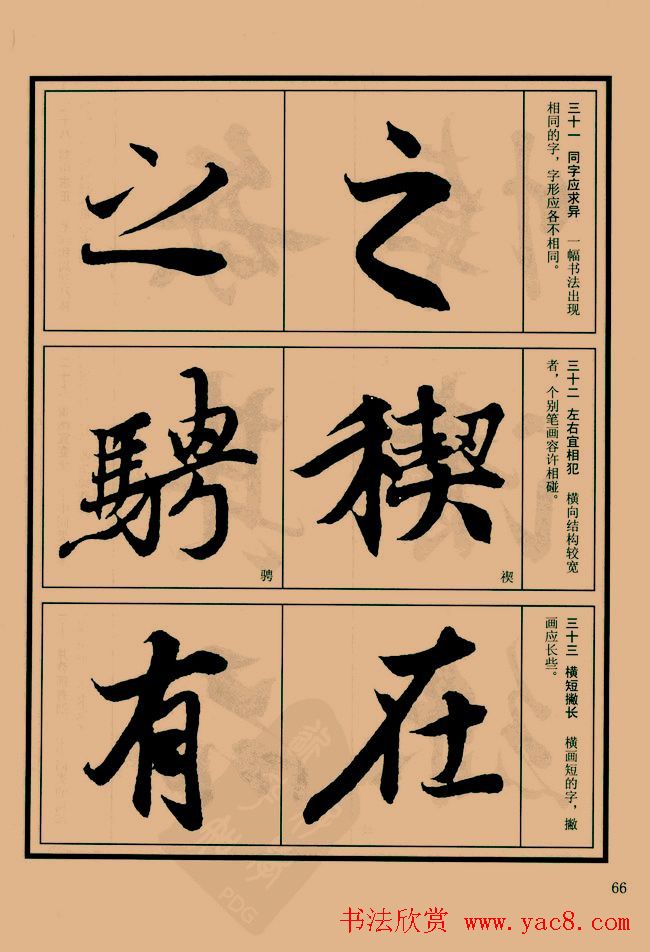 三十一 同字应求异 一幅书法出现
相同的字，字形应各不相同。
之
之
三十二 左右宜相犯 横向结构较宽
者，个别笔画容许相碰。
稧
禊
騁
骋
三十三 横短撇长 横画短的字，撇
画应长些。
在
有
66
书法欣赏 www.yac8.com
PDG